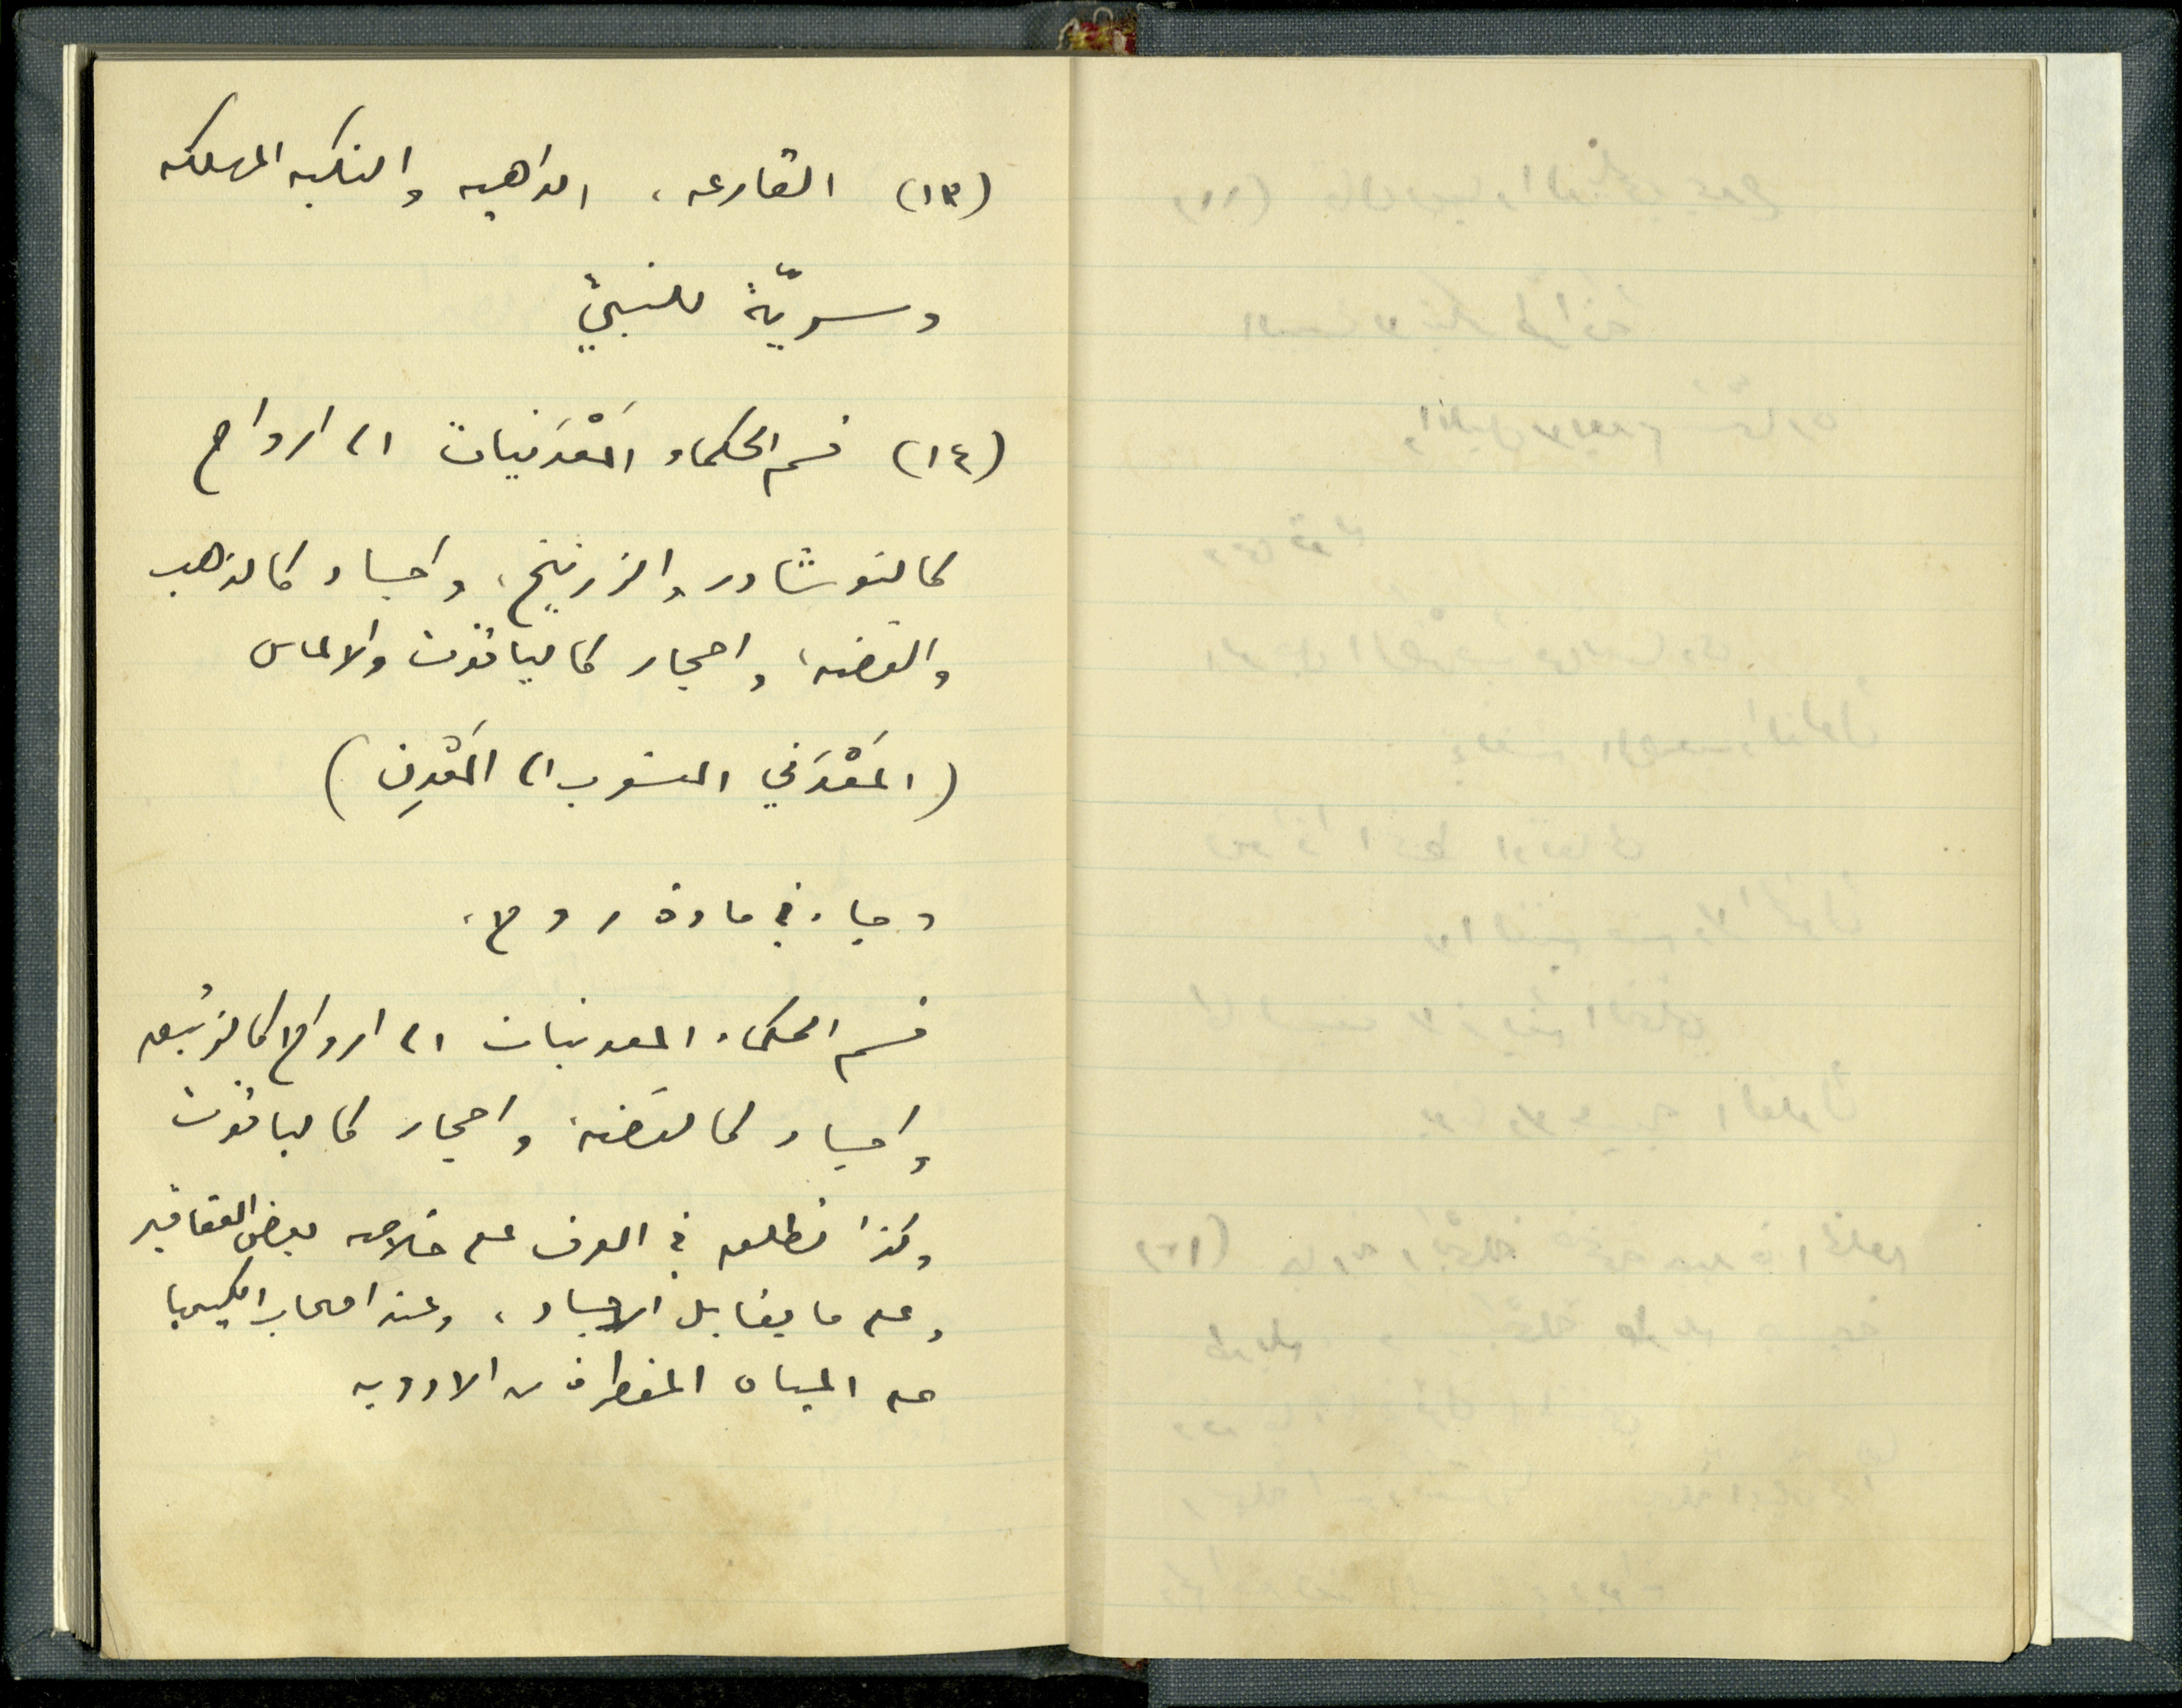 (١٣) القارعه، الداهيه والنكبه المهلكه
وسريّة للنبيّ
(١٤) قسم الحكماء المَعْدَنيات الى ارواح
كالنوشادر والزرنيخ، واجساد كالذهب
والفضه، واحجار كالياقوت والالماس
(المَعْدَني المنسوب الى المَعْدِن)
وجاء في مادة روح،
قسم الحكماء المعدنيات الى ارواح كالزئبق
واجساد كالفضة واحجار كالياقوت
وكذا تطلق في العرف على خلاصه بعض العقاقير
وعلى ما يقابل الاجساد، وعند اصحاب الكيميا
على المياه المقطرة من الادويه